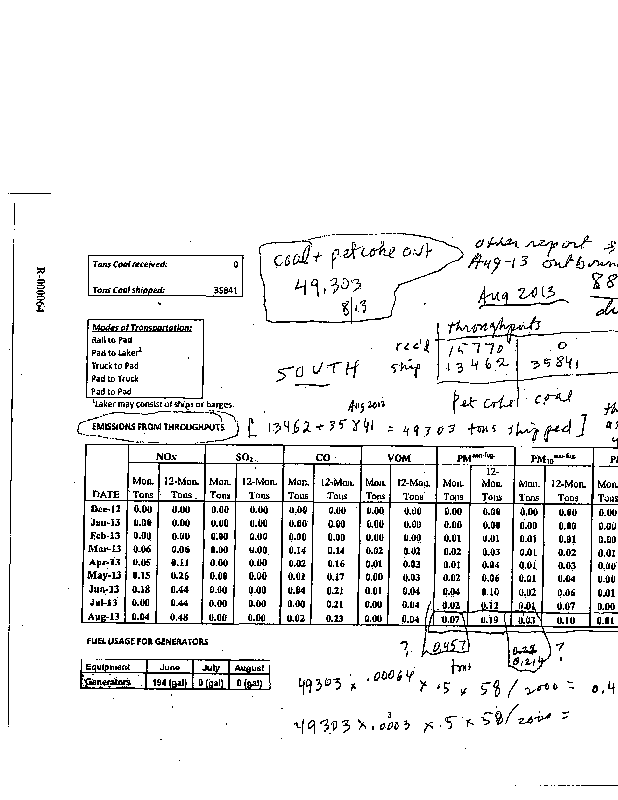 R-000064
Tons Coal received: 0
Tons Coal shipped: 35841
coal + petcoke out
49,303
8/13
other report
Aug-13 outboun
88
Aug 2013
throughputs
Modes of Transportation:
Rail to Pad
Pad to Laker¹
Truck to Pad
Pad to Truck
Pad to Pad
¹Laker may consist of ships or barges.
SOUTH
rec'd 15770 0
ship 13462 35841
pet coke coal
Aug 2013
EMISSIONS FROM THROUGHPUTS [13462 + 35841 = 49303 tons shipped]
NOx SO₂ CO VOM PM non-fug. PM₁₀ non-fug. P
DATE Mon. Tons 12-Mon. Tons Mon. Tons 12-Mon. Tons Mon. Tons 12-Mon. Tons Mon. Tons 12-Mon. Tons Mon. Tons 12-Mon. Tons Mon. Tons 12-Mon. Tons Mon. Tons
Dec-12 0.00 0.00 0.00 0.00 0.00 0.00 0.00 0.00 0.00 0.00 0.00 0.00 0.00
Jan-13 0.00 0.00 0.00 0.00 0.00 0.00 0.00 0.00 0.00 0.00 0.00 0.00 0.00
Feb-13 0.00 0.00 0.00 0.00 0.00 0.00 0.00 0.00 0.01 0.01 0.01 0.01 0.00
Mar-13 0.06 0.06 0.00 0.00 0.14 0.14 0.02 0.02 0.02 0.03 0.01 0.02 0.01
Apr-13 0.05 0.11 0.00 0.00 0.02 0.16 0.01 0.03 0.01 0.04 0.01 0.03 0.00
May-13 0.15 0.26 0.00 0.00 0.01 0.17 0.00 0.03 0.02 0.06 0.01 0.04 0.00
Jun-13 0.18 0.44 0.00 0.00 0.04 0.21 0.01 0.04 0.04 0.10 0.02 0.06 0.01
Jul-13 0.00 0.44 0.00 0.00 0.00 0.21 0.00 0.04 0.02 0.12 0.01 0.07 0.00
Aug-13 0.04 0.48 0.00 0.00 0.02 0.23 0.00 0.04 0.07 0.19 0.03 0.10 0.01
FUEL USAGE FOR GENERATORS
? 0.457 tons
0.214 ?
Equipment June July August
Generators 194 (gal) 0 (gal) 0 (gal)
49303 x .00064 x .5 x 58 / 2000 = 0.4
49303 x .0003 x .5 x 58 / 2000 =